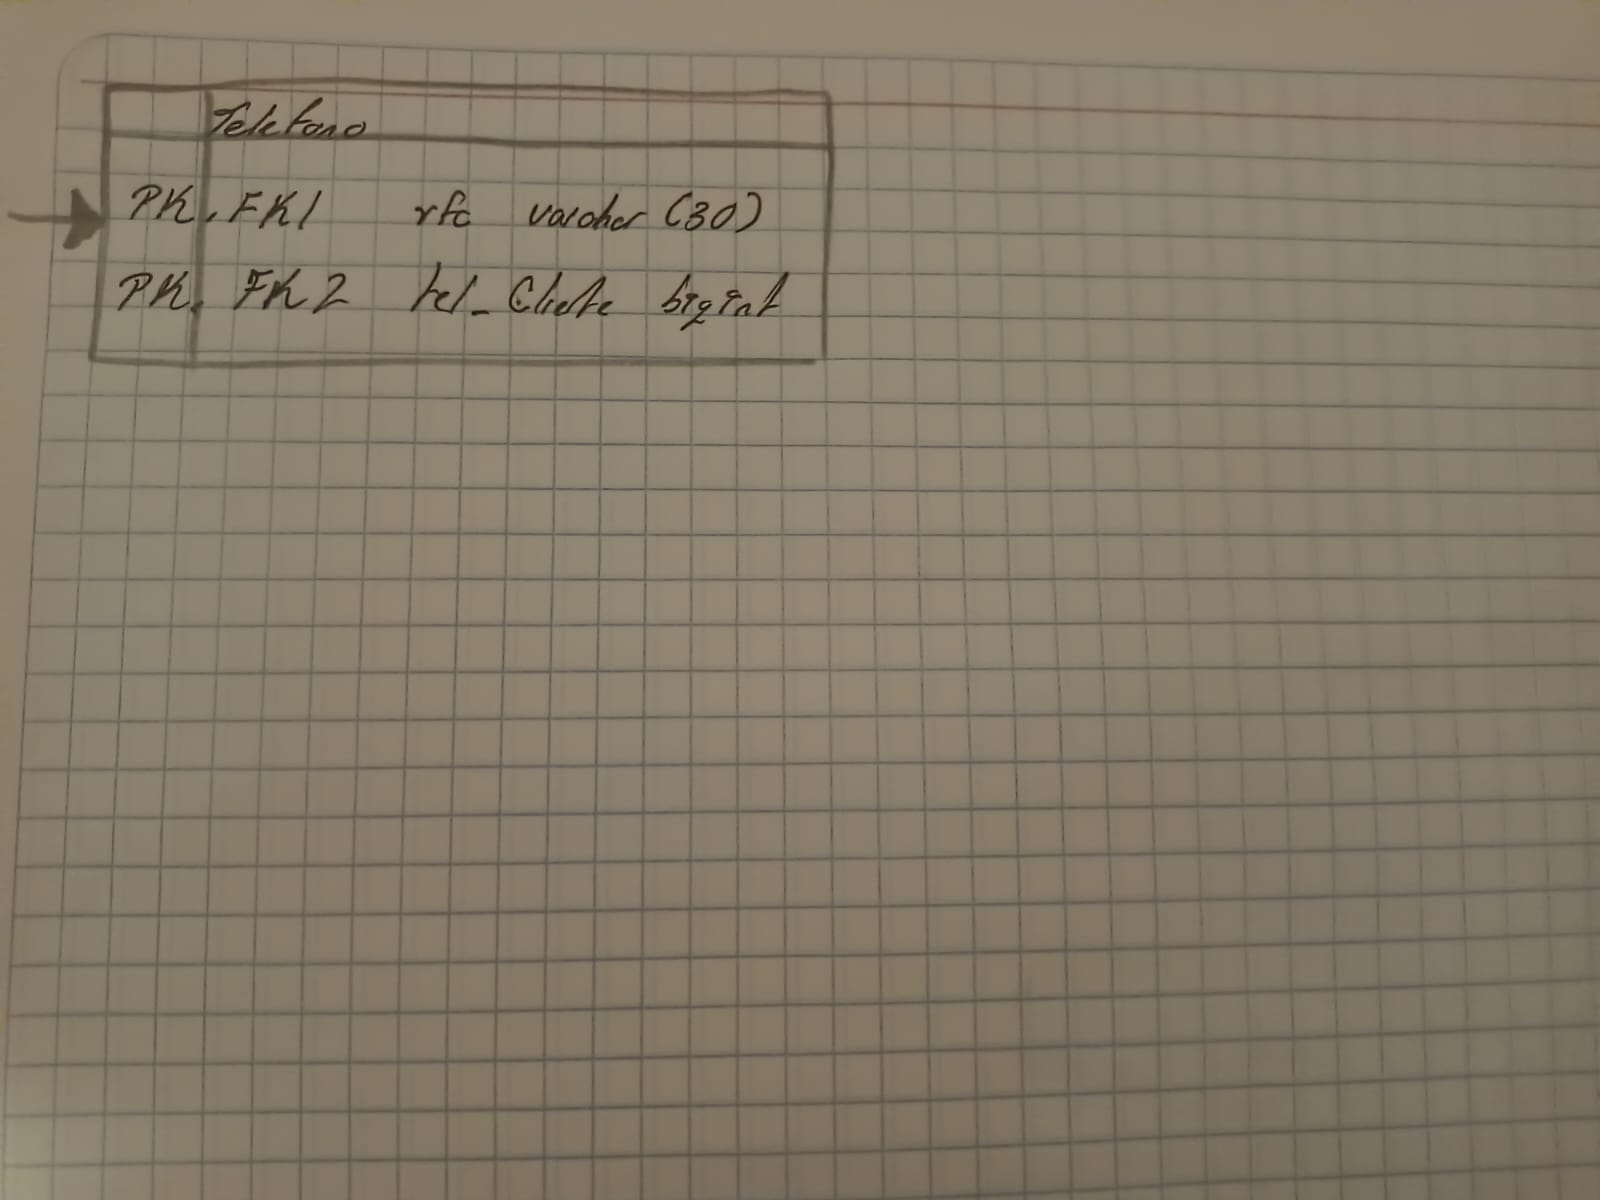 Telefono
PK, FK1 rfc varchar (30)
PK, FK2 tel_Cliete bigint